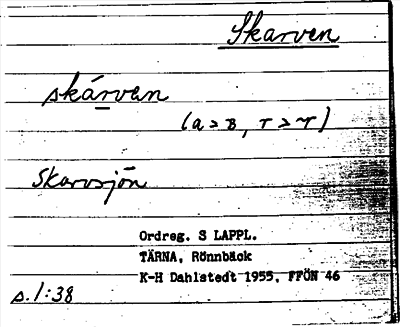 Skarven
skárven
(a > B, r > r)
Skarvsjön
Ordreg. S LAPPL.
TÄRNA, Rönnbäck
K-H Dahlstedt 1955, FFÖN 46
s. 1:38